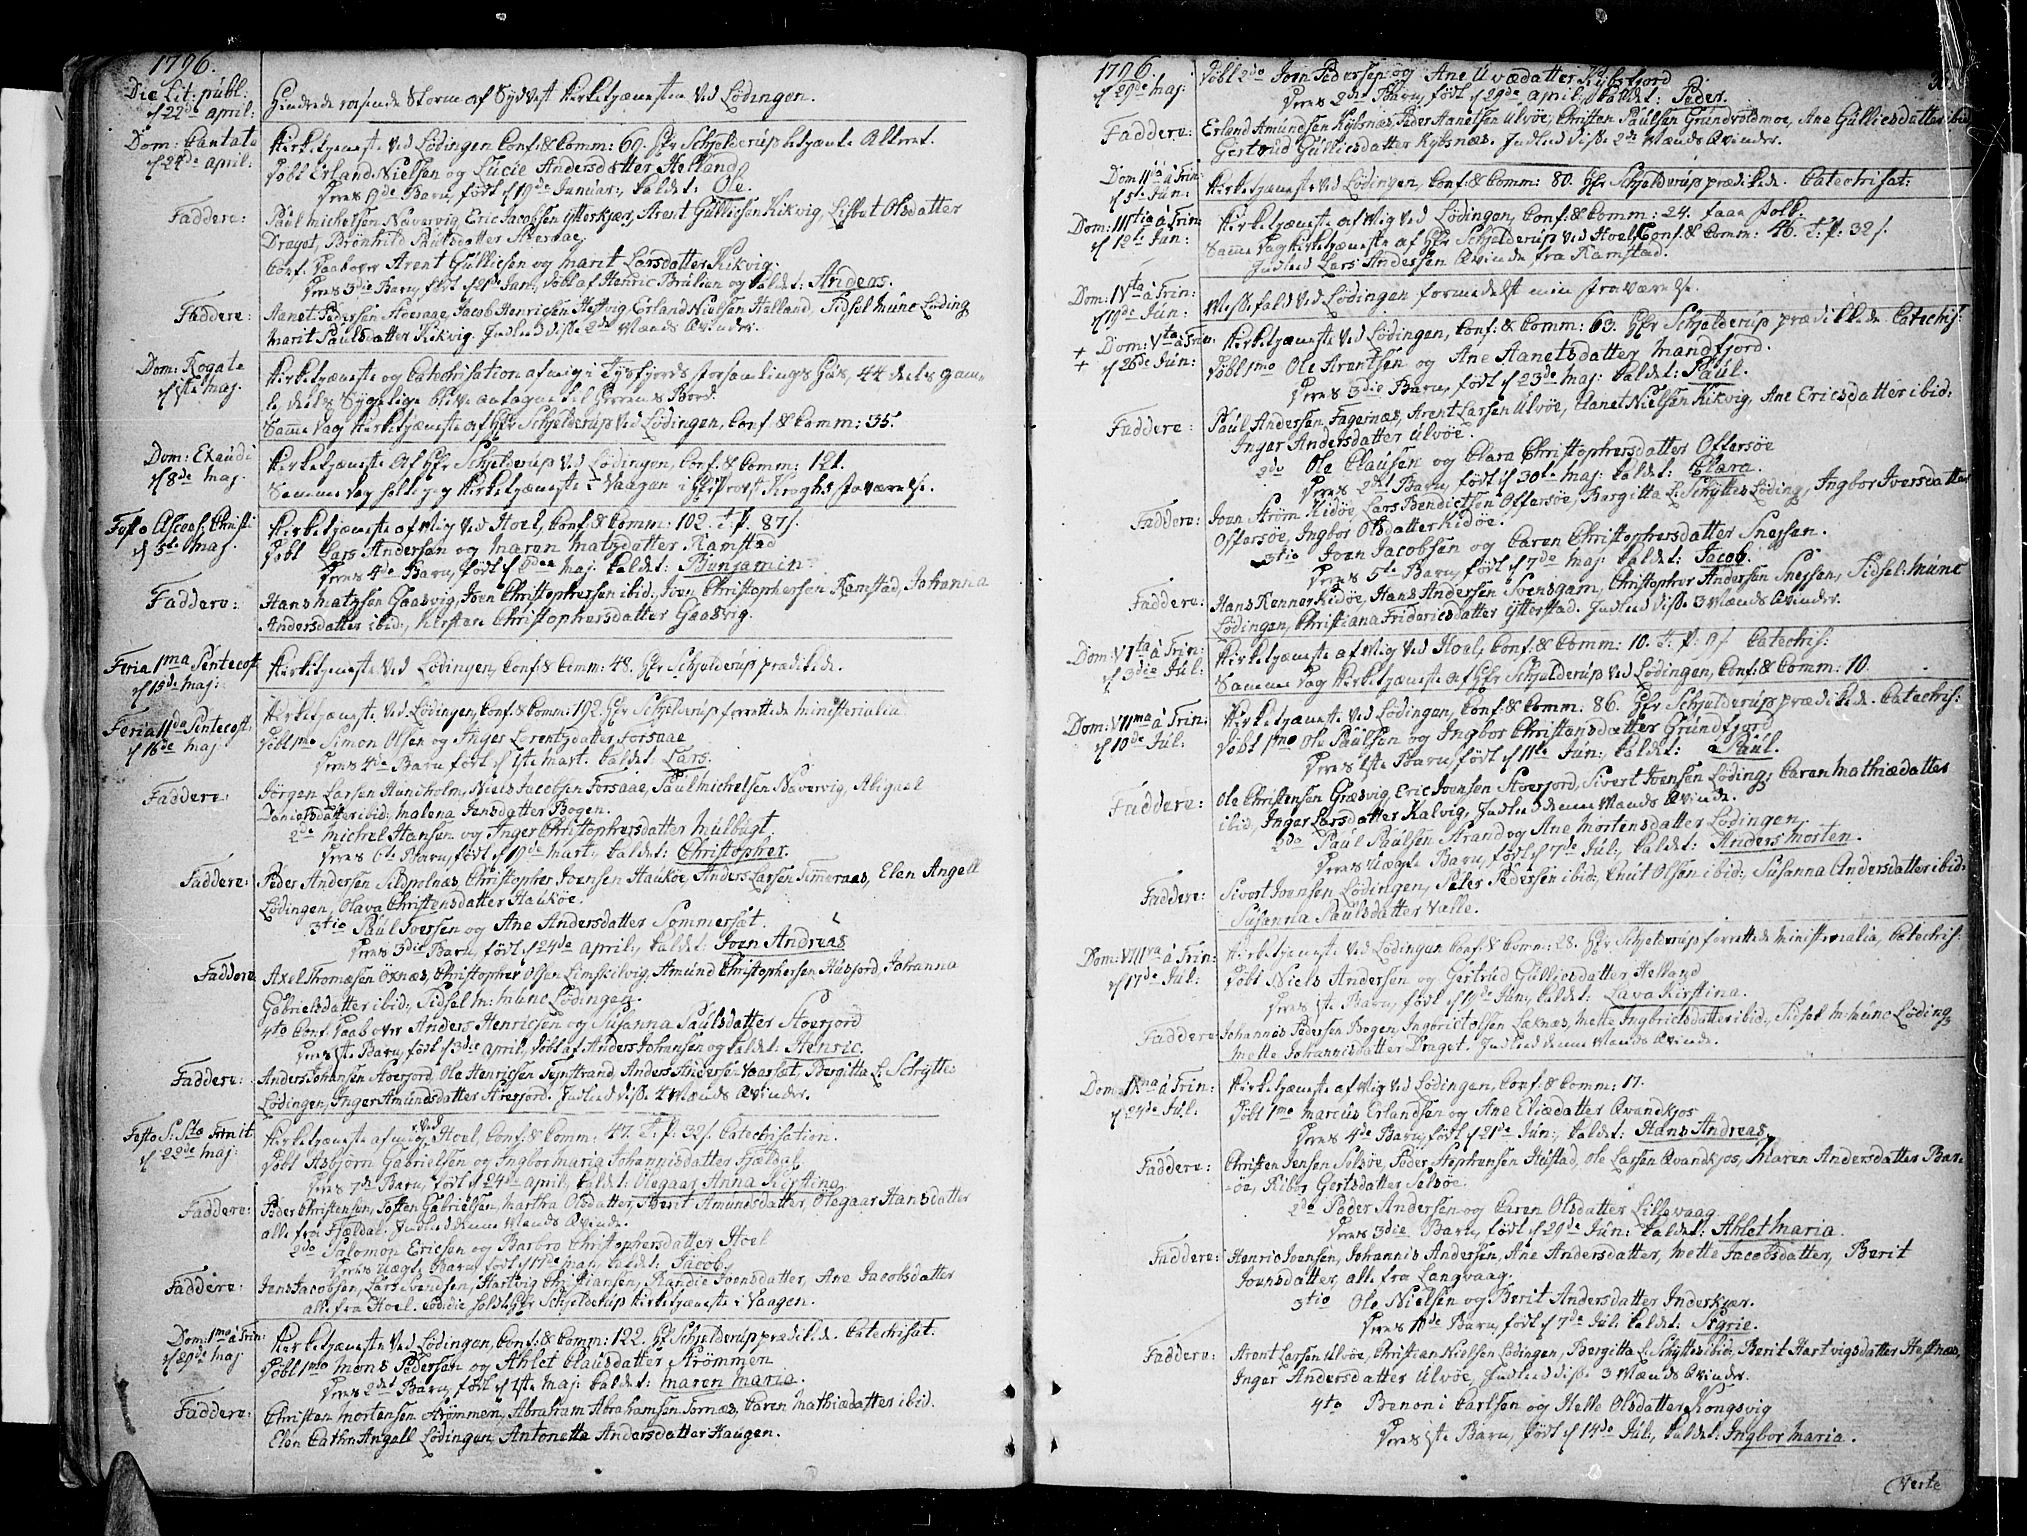 1796.
Die Lit: publ. Hindrede rasende Storm af Sydvest Kirketjænesten ved Lødingen.
d 22de april:
Dom: Cantate Kirketjæneste ved Lødingen Conf: & Comm: 60. Hr Schjelderup betjente Alteret.
d 24de april: Døbt Erland Nielsen og Lucie Andersdatter Helland
Deres 9de Barn, født d 19de Januar, kaldet: Ole.
Faddere: Paul michelsen Näverwig, Eric Jacobsen Ytterkjær, Arent Gulliesen Kikvig, Lisbet Olsdatter
Draget, Brønhild Paulsdatter
Conf. Daaben over Arent Gulliesen og marit Larsdatter Kikvig.
Deres 3die Barn, født d 21de Jan:, døbt af Henric Brulien og kaldet: Andreas.
Faddere: Aanet Pedersen Jacob Henricsen Erland Nielsen Helland, Sidsel Münc Löding
marit Paulsdatter Kikvig. Indled disse 2de Mænds Qvinder.
Dom: Rogate Kirketjæneste og Catechisation af mig i Tysfjords forsamlings Huus, 44 deels gam-
d 1ste maj. le, deels Sygelige bleve antagne til Herrens Bord.
Samme Dag Kirketjæneste af Hr Schjelderup ved Lødingen, Conf: & Comm: 35.
Dom: Exaudi Kirketjæneste af Hr Schjelderup ved Lødingen, Conf: & Comm: 121.
d 8de maj. Samme Dag holt jeg Kirketjæneste i Vaagen i Hr Provst Kroghs fraværelse.
Festo Ascens: Christi Kirketjæneste af Mig ved Hoel, Conf: & Comm: 102. T. P. 87 s.
d 5te maj. Døbt Lars Andersen og maren matzdatter Ramstad
Deres 4de Barn, født d maj: kaldet: Benjamin
Faddere: Hans matzsen Gaasvig, Joen Christophersen ibid:, Joen Christophersen Ramstad, Johanna
Andersdatter ibid:, Kirsten Christophersdatter Gaasvig.
Feria 1ma Pentecost Kirketjæneste ved Lødingen, Conf: & Comm: 48. Hr Schjelderup prædikede.
d 15de maj:
Feria 11da Pentecost: Kirketjæneste ved Lødingen, Conf: & Comm: 192. Hr Schjelderup forrettede ministerialia
d 16de maj: Døbt 1mo Simon Olsen og Inger Lorentzdatter Forsaae
Deres 4de Barn født d 1ste mart. kaldet: Lars.
Faddere: Jörgen Larsen Hundholm, Niels Jacobsen Forsaae, Paul michelsen Näverwig, Abiguel
Danielsdatter ibid; malena Jensdatter Bogen.
2do michel Hansen og Inger Christophersdatter Mulbugt
Deres 6te Barn, født d 19de mart:, kaldet: Christopher.
Faddere: Peder Andersen Sildpolnæs, Christopher Joensen Haukøe, Anders Larsen Elen Angell
Lødingen, Olava Christensdatter Haukøe.
3tio Paul Iversen og Ane Andersdatter Sommerset.
Deres 3die Barn, født d 24de april:, kaldet: Joen Andreas
Faddere Axel Thomæsen Öxnæs, Christopher Olsen Limskilvig, Amund Christophersen Husjord, Johanna
Gabrielsdatter ibid:, Sidsel M: münc Lødingen.
4to Conf: Daab over Anders Henricsen og Susanna Paulsdatter Stoerjord
Deres 1ste Barn, født d 3die april, døbt af Anders Johansen og kaldet: Henric.
Faddere: Anders Johansen Stoerjord, Ole Henricsen Anders Andersen Vaarset, Bergitta L: Schytte
Lødingen, Inger Amundsdatter Stoerjord. Indled disse 4 Mænds Qvinder.
Festo S: Stæ Trinit: Kirketjæneste af mig ved Hoel, Conf: & Comm: 47. T. P. 32 s. Catechisation.
d 22de maj: Døbt Asbjørn Gabrielsen og Ingbor maria Johannisdatter Fjældal
Deres 7de Barn, født d 24de april, kaldet: Olegaar Anna Kirstina.
Faddere: Peder Christensen, Gabrielsen, martha Olsdatter, Berit Amundsdatter, Olegaar Hansdatter
alle fra Fjældal. Indled denne Mands Qvinde.
2do Salomon Ericsen og Barbro Christophersdatter Hoel
Deres Uægte Barn, født d 17de maj, kaldet: Jacob.
Faddere: Jens Jacobsen, Lars Svendsen, Hartvig Christiansen, Randie Joensdatter, Ane Jacobsdatter
alle fra Hoel. eodie holdt Hr Schjelderup Kirketjæneste i Vaagen.
Dom: 1ma à Trin: Kirketjæneste ved Lødingen, Conf: & Comm: 122. Hr Schjelderup prædikede. Catechisat.
d 29de maj Døbt 1mo Mons Pedersen og Ahlet Clausdatter Strømmen
Deres 2det Barn, født d 1ste maj: kaldet: maren maria.
Faddere: Christen Mortensen Strømmen, Abraham Abrahamsen Fornæs, Caren Mathiædatter ibid.
Elen Cathr: Angell Lødingen, Antonetta Andersdatter Haugen.
1796.
d 29de maj: Døbt 2do Joen Pedersen og Ane Uvædatter
Deres 2det Barn, født d 29de april, kaldet: Peder.
Faddere: Erland Amundsen Kybsnæs, Peder Aanetsen Ulvöe, Christen Paulsen Grundvoldmoe, Ane Gulliesdatter ibid
Gertrud Gulliesdatter Kybsnæs. Indled disse 2de Mænds Qvinder.
Dom 11da à Trin: Kirketjæneste ved Lødingen, Conf: & Comm: 80. Hr Schjelderup prædikede. Catechisat:
d 5te Jun:
Dom: 111tia à Trin Kirketjæneste af Mig ved Lødingen, Conf: & Comm: 24. faae folk.
d 12te Jun: Samme Dag Kirketjæneste af Hr Schjelderup ved Hoel, Conf: & Comm: 46. T. P. 32 s.
Indled Lars Andersen Qvinde, fra Ramstad.
Dom: 1Vta à Trin: Messefald ved Lødingen formedelst min fraværelse.
d 19de Jun:
Dom: Vta à Trin: Kirketjæneste ved Lødingen, Conf: & Comm: 63. Hr Schjelderup prædikede Catechis:
d 26de Jun: Døbt 1mo Ole Arentsen og Ane Aanetsdatter Mandfjord.
Deres 3die Barn, født d 23de maj: kaldet: Paul.
Faddere: Paul Andersen Fagernæs, Arent Larsen Ulvöe, Aanet Nielsen Kikvig, Ane Ericsdatter ibid:
Inger Andersdatter Ulvöe.
2do Ole Clausen og Clara Christophersdatter Offersøe
Deres 2det Barn, født d 30te maj: kaldet: Clara.
Faddere: Joen Strøm Kidøe, Lars Bendictsen Offersøe, Bargitta L: Schytte Löding, Ingbor Iversdatter
Offersøe, Ingbor Olsdatter Kidøe.
3tio Joen Jacobsen og Caren Christophersdatter Snessen.
Deres 5te Barn, født d 7de maj: kaldet: Jacob.
Faddere: Hans Renner Kidøe, Hans Andersen Svensgam, Christopher Andersen Snessen, Sidsel: Münc
Lödingen, Christiana Fridericsdatter Ytterstad. Indled disse 3 Mænds Qvinder.
Dom: V1ta à Trin: Kirketjæneste af Mig ved Hoel, Conf: & Comm: 10. T. P. Catechis:
d 3die Jul: Samme Dag Kirketjæneste af Hr Schjelderup ved Lødingen, Conf: & Comm: 10.
Dom: V11ma à Trin: Kirketjæneste ved Lødingen, Conf: & Comm: 86. Hr Schjelderup prædikede Catechis:
d 10de Jul: Døbt 1mo Ole Paulsen og Ingbor Christensdatter Grundfjord
Deres 1ste Barn, født d 11te Jun: kaldet: Paul.
Faddere: Ole Christensen Græsvig, Eric Joensen Stoerjord, Sivert Joensen Löding; Caren Mathiædatter
ibid, Inger Larsdatter Kalvig, Indled denne Mands Qvinde.
2do Paul Paulsen Strand og Ane Mortensdatter Lødingen,
Deres Uægte Barn, født d 7de Jul:, kaldet: Anders Morten.
Faddere: Sivert Joensen Lødingen, Peder Pedersen ibid:, Knut Olsen ibid:, Susanna Andersdatter ibid:
Susanna Paulsdatter Valle.
Dom: V111va à Trin: Kirketjæneste ved Lødingen Conf: & Comm: 28. Hr Schjelderup forrettede ministerialia, Catechis:
d 17de Jul: Døbt Niels Andersen og Gertrud Gulliesdatter Helland
Deres 1ste Barn, født d 19de Jun:, kaldet: Lava Kirstina.
Faddere Johannes Pedersen Bogen, Ingbrict Olsen Læknæs, Mette Ingbrictsdatter ibid:, Sidsel M: Münc Löding
Mette Johannisdatter Draget. Indled denne Mands Qvinde.
Dom: 1Xna à Trin: Kirketjæneste af Mig ved Lødingen, Conf: & Comm: 17.
d 24de Jul: Døbt 1mo Marcus Erlandsen og Ane Eliædatter Qvandkjos
Deres 4de Barn, født d 21de Jun:, kaldet: Hans Andreas.
Faddere: Christen Jensen Selsøe, Peder Stephensen Hustad, Ole Larsen Qvandkjos, Maren Andersdatter Bar-
øe, Kibor Gertsdatter Selsøe.
2do Peder Andersen og Caren Olsdatter Lillevaag
Deres 3die Barn, født d 29de Jun: kaldet: Ahlet Maria.
Faddere: Henric Joensen, Johannis Andersen, Ane Andersdatter, Mette Jacobsdatter, Berit
Joensdatter, alle fra Langvaag.
3tio Ole Nielsen og Berit Andersdatter Inderkjær.
Deres Barn, født d 7de Jul: kaldet: Segrie.
Faddere: Arent Larsen Ulvöe, Christian Nielsen Lødingen, Bergitta L: Schytte ibid: Berit Hartvigsdatter Hestnæs,
Inger Andersdatter Ulvöe, Indled disse 3 Mænds Qvinder.
4to Benoni Carlsen og Helle Olsdatter Kongsvig
Deres 1ste Barn, født d 14de Jul:, kaldet: Ingbor Maria.
Verte